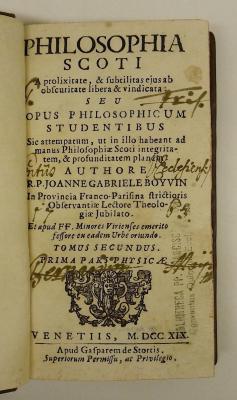 PHILOSOPHIA
SCOTI
A prolixitate, & subtilitas ejus ab
obscuritate libera & vindicata:
SEU
OPUS PHILOSOPHICUM
STUDENTIBUS
Sic attemperatum, ut in illo habeant ad
manus Philosophiæ Scoti integrita-
tem, & profunditatem planam.
AUTHORE
R.P. JOANNE GABRIELE BOYVIN
In Provincia Franco-Parisina strictioris
Observantiæ Lectore Theolo-
giæ Jubilato.
Et apud FF. Minores Virienses emerito
fessore ex eadem Urbe oriundo.
TOMUS SECUNDUS.
PRIMA PARS PHYSICÆ
VENETIIS, M. DCC XIX.
Apud Gasparem de Stortis.
Superiorum Permissu, ac Privilegio.